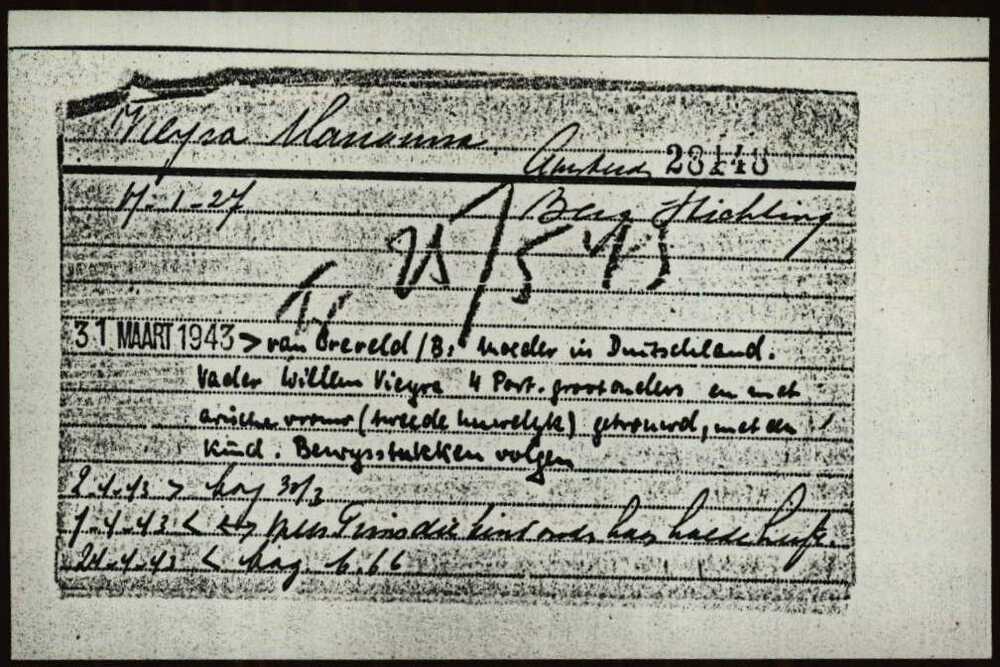 Vieyra Marianna
Amsterd. 28148
17-1-27 Berg Stichting
25/5 43
31 MAART 1943 > van Creveld /B: Moeder in Duitschland.
Vader Willem Vieyra 4 Port. grootouders en met
arische vrouw (tweede huwelijk) getrouwd, met een
kind. Bewijsstukken volgen
2-4-43 > haag 30/3
7-4-43 <
24-4-43 < haag 6.66